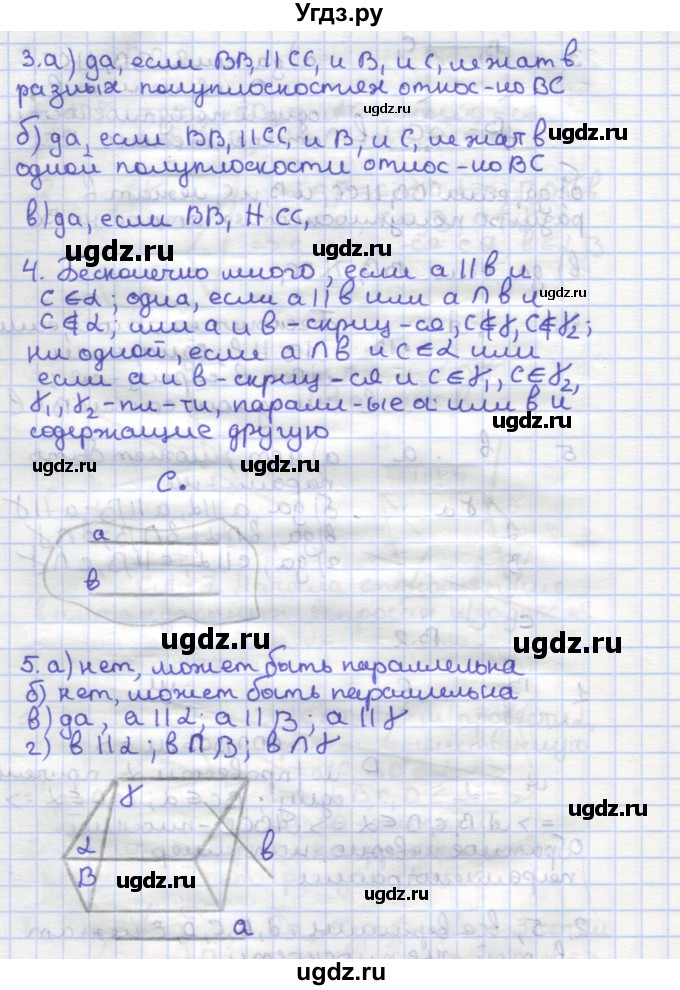 Угдз.ру
3.а) да, если BB₁ II CC₁ и B₁ и C₁ лежат в
разных полуплоскостях относ-но BC
ugdz.ru
б) да, если BB₁ II CC₁ и B₁ и C₁ лежат в
ugdz.ru
одной полуплоскости относ-но BC
ugdz.ru
в) да, если BB₁ ∦ CC₁
ugdz.ru
ugdz.ru
4. Бесконечно много, если a II в и
C ∈ α; одна, если a II в или a ∩ в и
ugdz.ru
C ∉ α; или a и в - скрещ-ся, C ∉ γ₁ C ∉ γ₂;
ни одной, если a ∩ в и C ∈ α или
если a и в - скрещ-ся и C ∈ γ₁, C ∈ γ₂,
γ₁, γ₂ - пл-ти, паралл-ые a или в и
содержащие другую
ugdz.ru
ugdz.ru
ugdz.ru
C.
a
в
ugdz.ru
ugdz.ru
5. а) нет, может быть параллельна
б) нет, может быть параллельна
в) да, a II α; a II β; a II γ
г) в II α; в ∩ β; в ∩ γ
γ
ugdz.ru
α
в
β
ugdz.ru
ugdz.ru
a
ugdz.ru